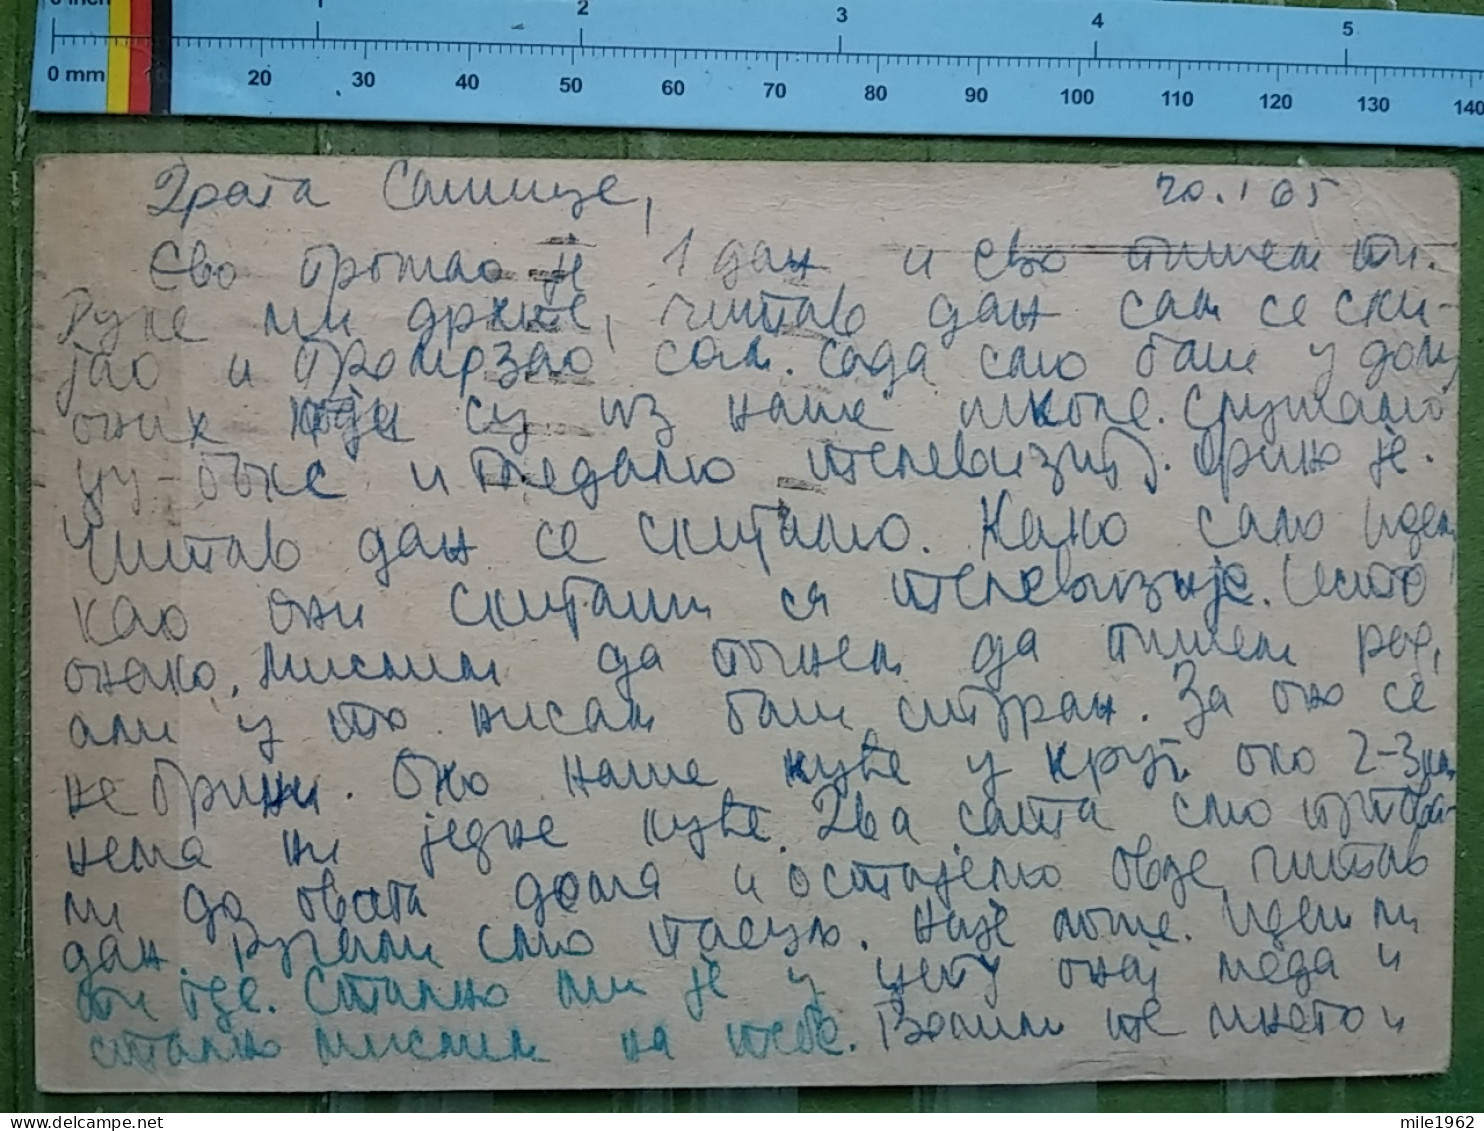 0 inch 1 2 3 4 5
0 mm 10 20 30 40 50 60 70 80 90 100 110 120 130 140
Драга Сашице, 20. I 65
Ево прошао је 1 дан и ево пишем ти.
Руке ми дрхте, читав дан сам се ски-
јао и промрзао сам. Сада смо баш у дому
оних који су из наше школе. Слушамо
џу-бокс и гледамо телевизију. Фино је.
Читав дан се скитамо. Како само идем
као они скиташи са телевизије. Исто
онако. Мислим да почнем да пишем
али у то нисам баш сигуран. За ово се
не брини. Око наше куће у круг око 2-3 км
нема ни једне куће. Два сата смо путова-
ли до овога дома и остајемо овде читав
дан. Ручали смо пасуљ. Није лоше. Иди ми
Стално ми је у џепу онај меда и
стално мислим на тебе. Волим те много и
mile1962